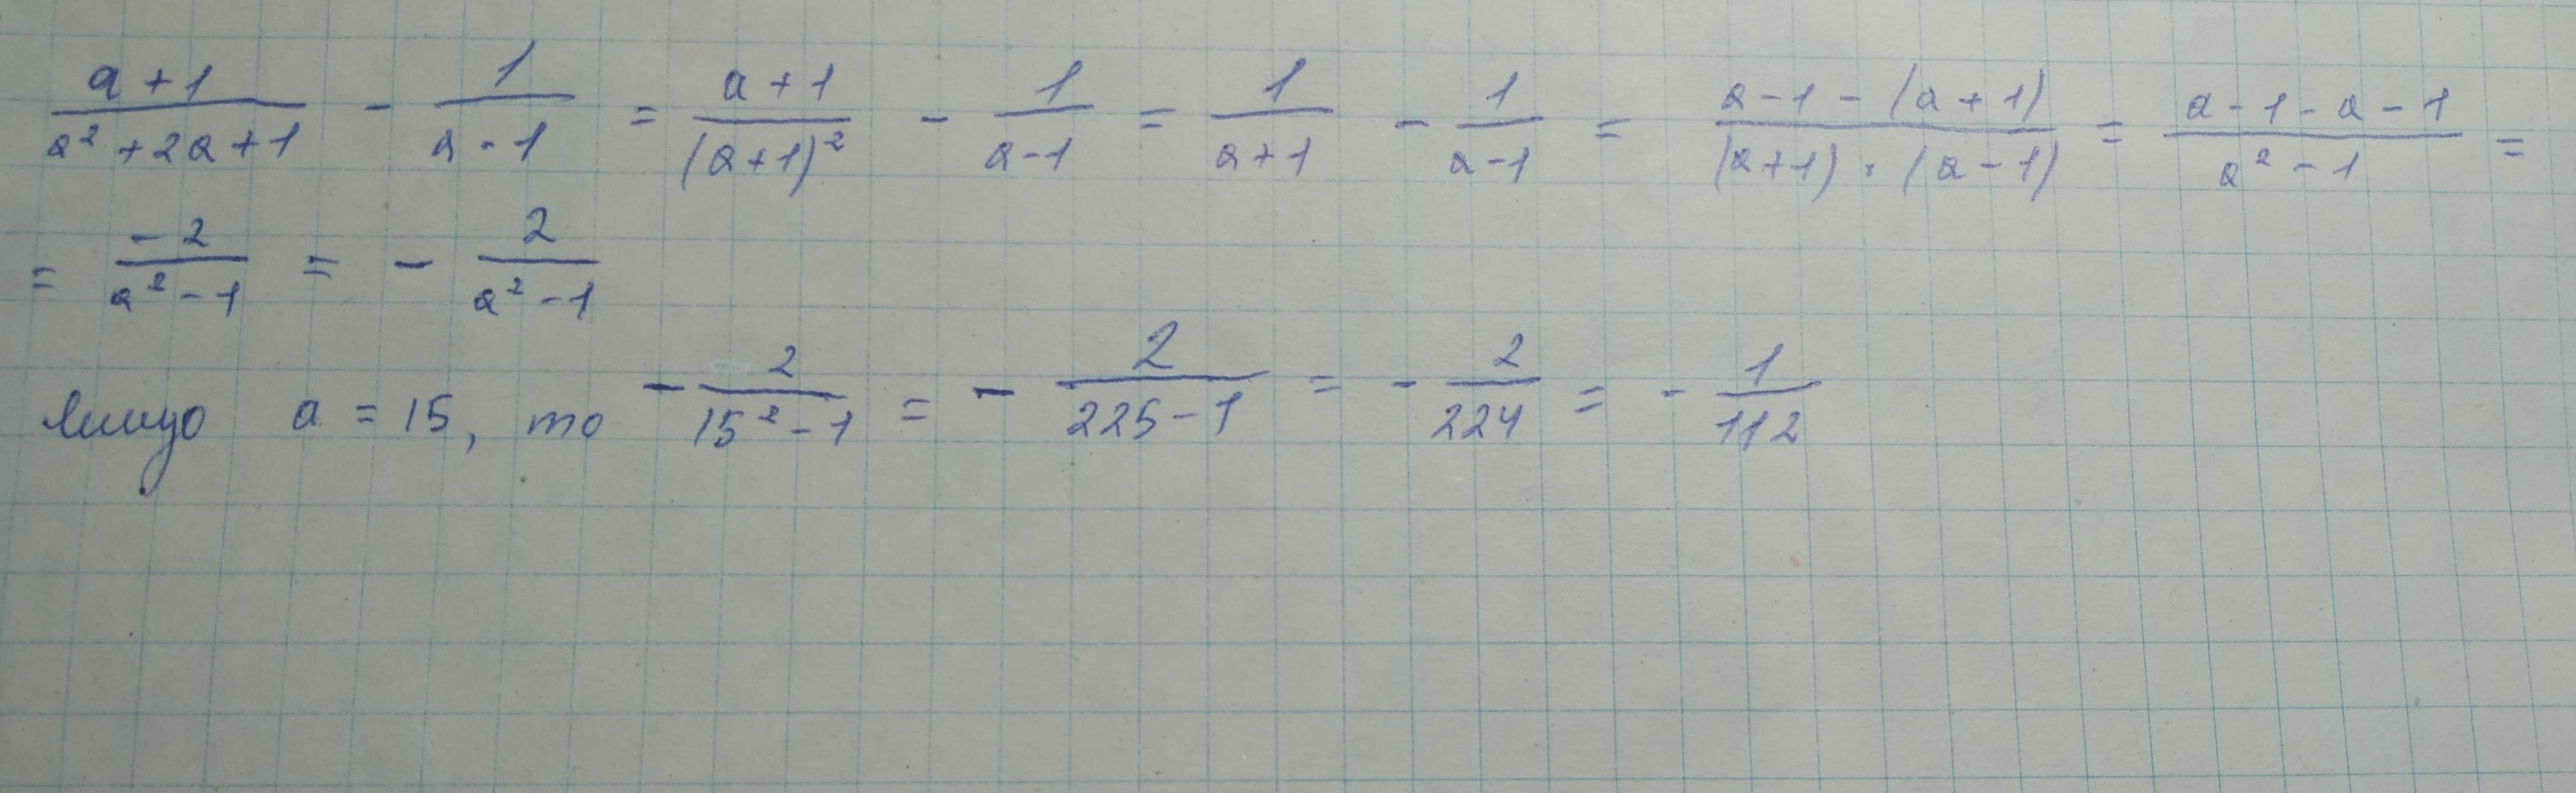 (a+1)/(a²+2a+1) - 1/(a-1) = (a+1)/(a+1)² - 1/(a-1) = 1/(a+1) - 1/(a-1) = (a-1-(a+1))/((a+1)·(a-1)) = (a-1-a-1)/(a²-1) =
= -2/(a²-1) = - 2/(a²-1)
Якщо a = 15, то - 2/(15²-1) = - 2/(225-1) = - 2/224 = - 1/112